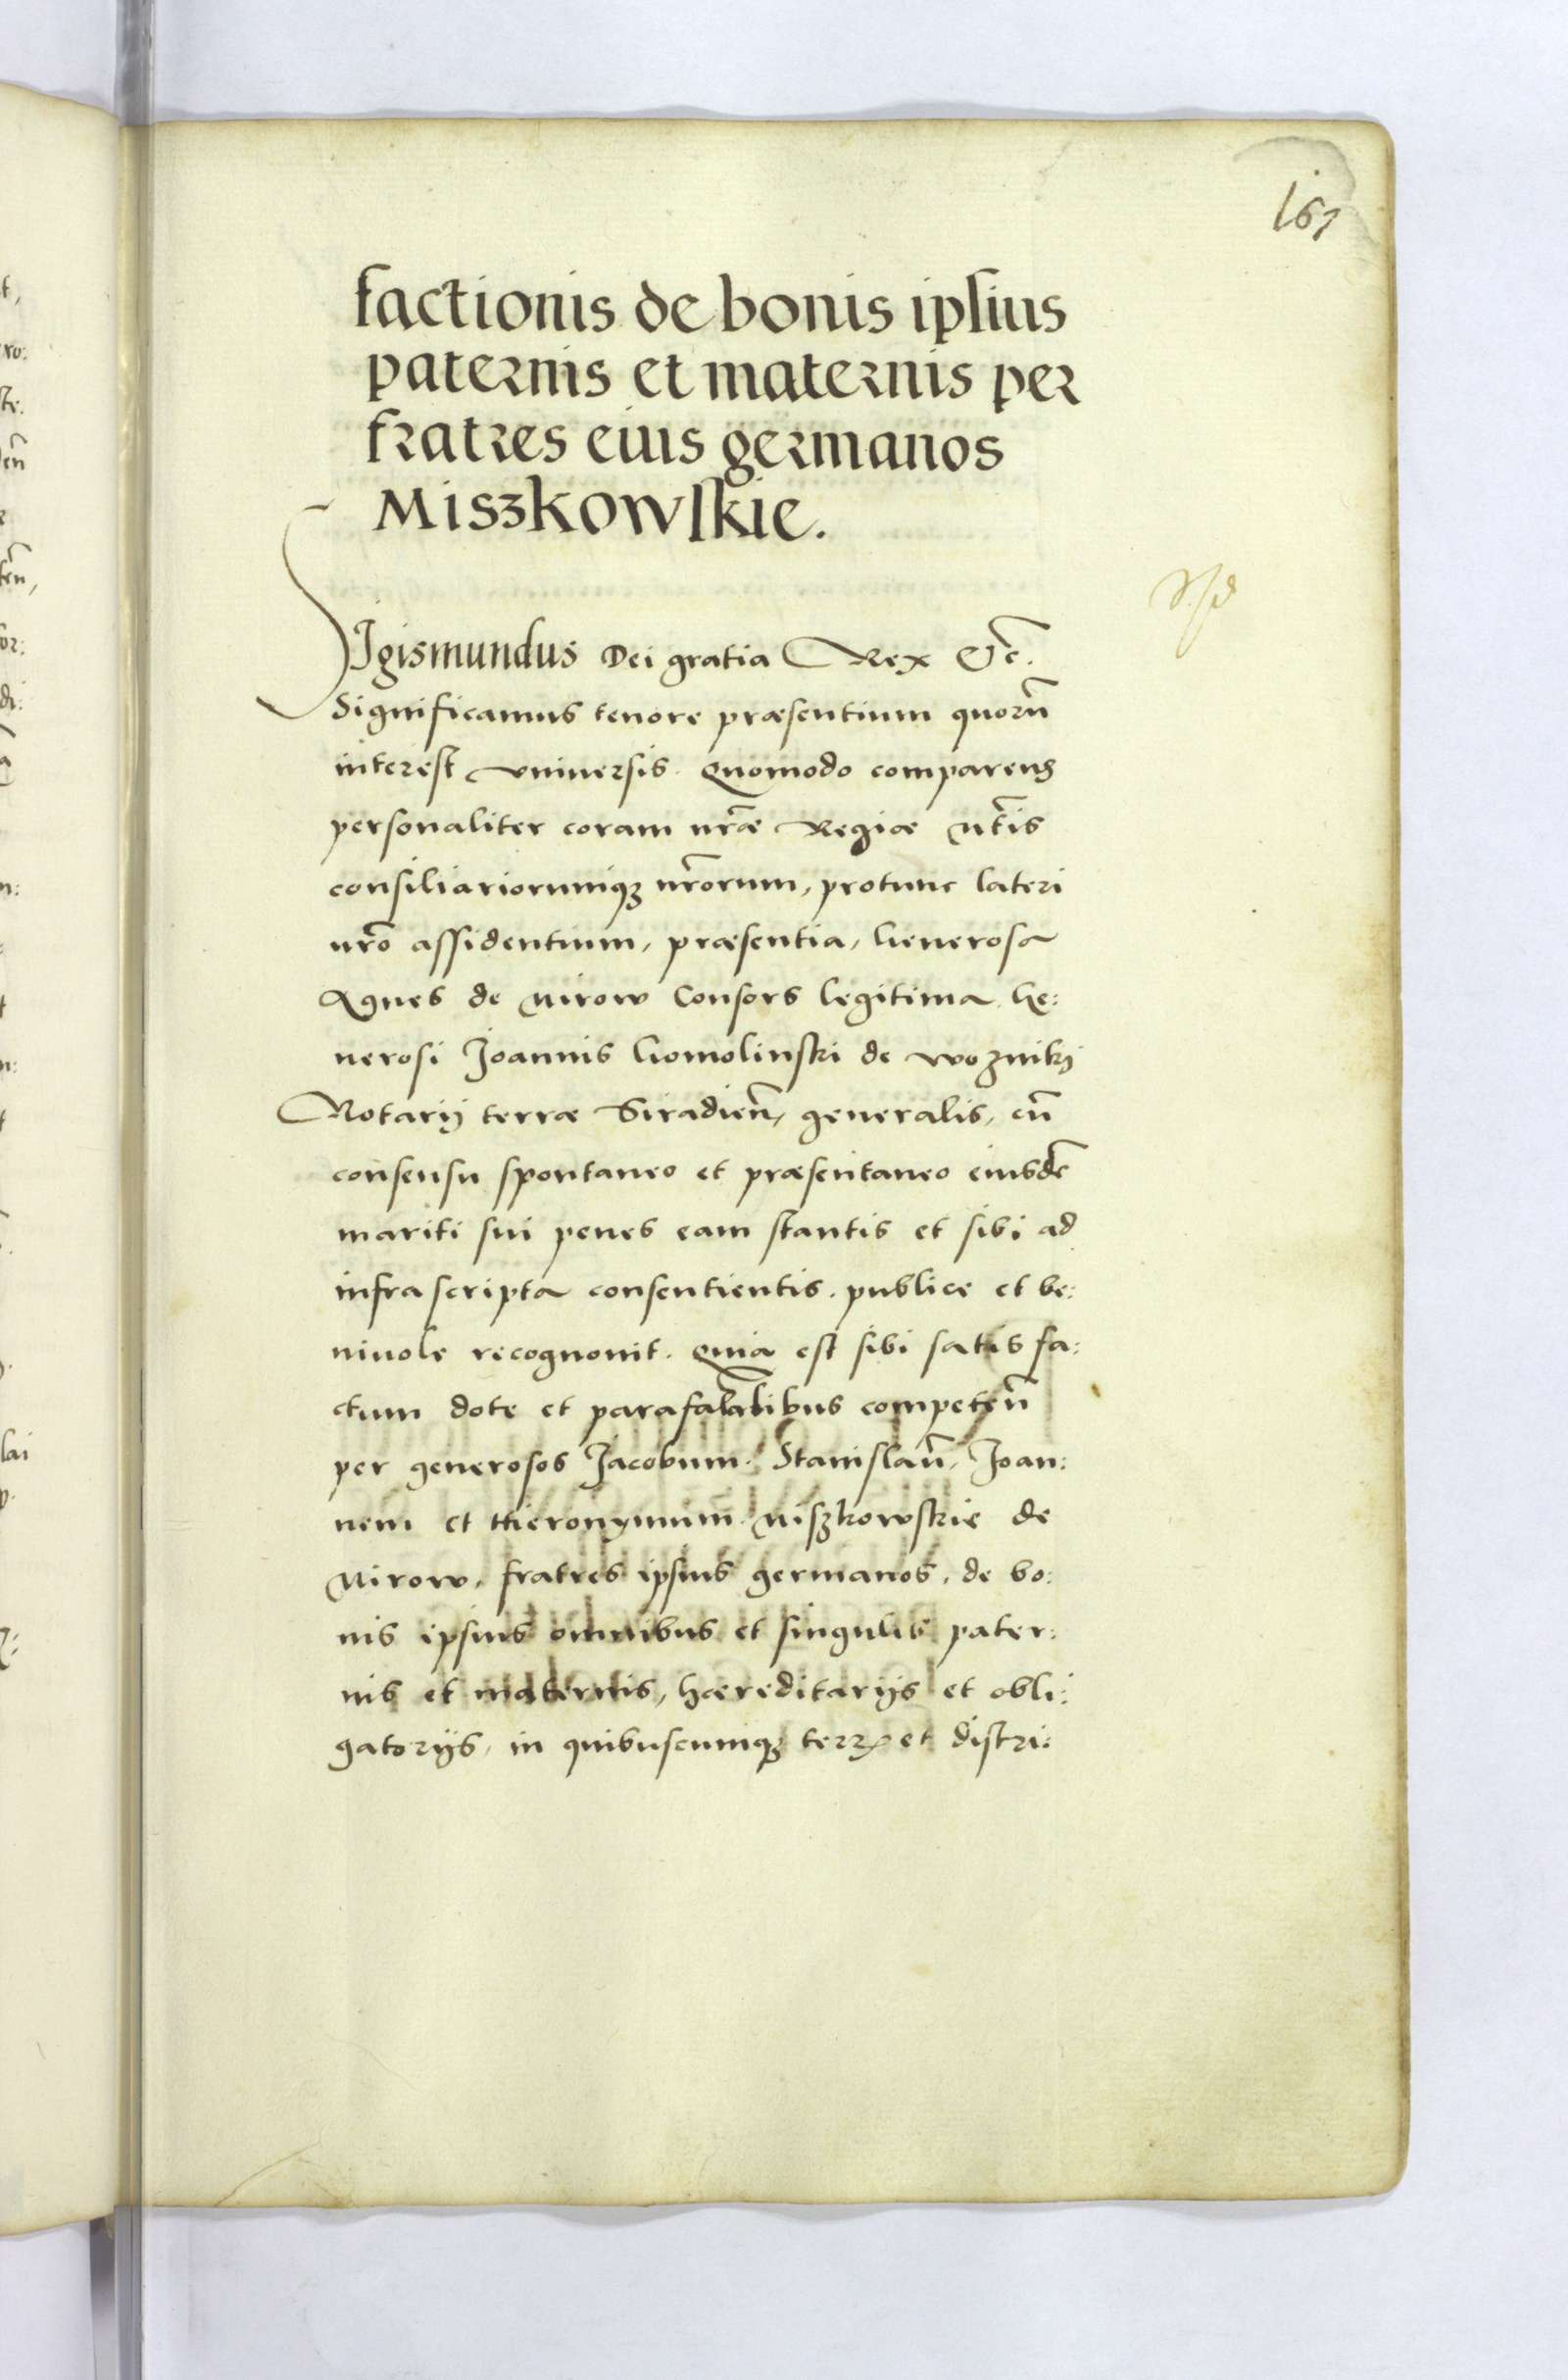 167
factionis de bonis ipsius
paternis et maternis per
fratres eius germanos
Miszkowskie.
Sigismundus Dei gratia Rex &c̃.
Significamus tenore præsentium quorũ
interest vniuersis. Quomodo comparens
personaliter coram nr̃æ Regiæ Mtĩs
consiliariorumqꝫ nr̃orum, protunc lateri
nr̃o assidentium, præsentia, Generosa
Agnes de Mirow Consors legitima Ge:
nerosi Joannis Gomolinski de Wozniki
Notarij terræ Siradieñ, generalis, cũ
consensu spontaneo et præsentaneo eiusdẽ
mariti sui penes eam stantis et sibi ad
infrascripta consentientis. publice et be:
niuole recognouit. Quia est sibi satis fa:
ctum dote et parafalalibus competeñ
per generosos Jacobum. Stanislaũ, Joan:
nem et Hieronymum Miszkowskie de
Mirow, fratres ipsius germanos, de bo:
nis ipsius omnibus et singulis pater:
nis et maternis, hæreditarijs et obli:
gatorijs, in quibuscumqꝫ terrꝭ et distri: